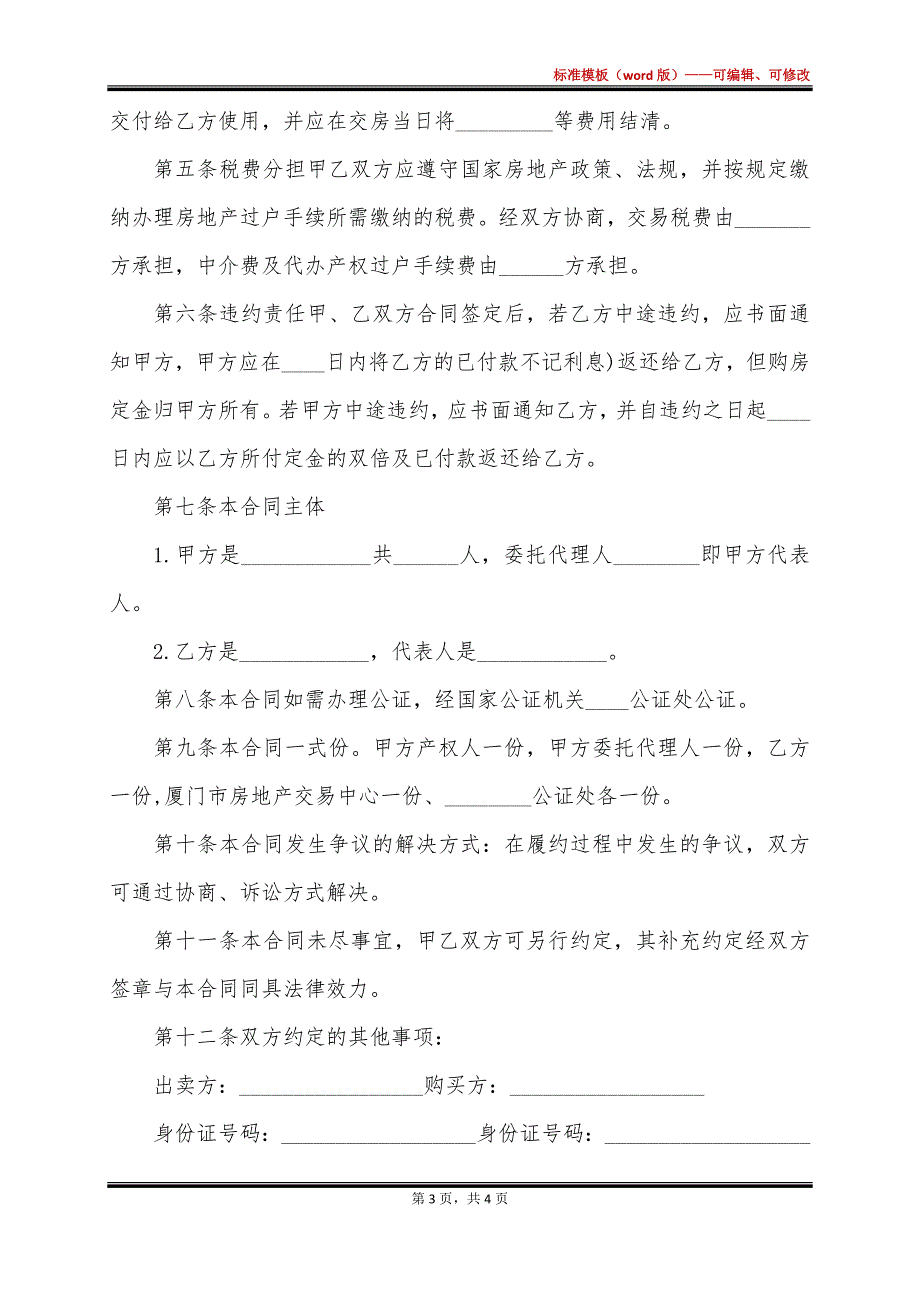 标准模板（word 版）——可编辑、可修改
交付给乙方使用，并应在交房当日将_________等费用结清。
第五条税费分担甲乙双方应遵守国家房地产政策、法规，并按规定缴
纳办理房地产过户手续所需缴纳的税费。经双方协商，交易税费由_______
方承担，中介费及代办产权过户手续费由______方承担。
第六条违约责任甲、乙双方合同签定后，若乙方中途违约，应书面通
知甲方，甲方应在____日内将乙方的已付款不记利息)返还给乙方，但购房
定金归甲方所有。若甲方中途违约，应书面通知乙方，并自违约之日起____
日内应以乙方所付定金的双倍及已付款返还给乙方。
第七条本合同主体
1.甲方是____________共______人，委托代理人________即甲方代表
人。
2.乙方是____________，代表人是____________。
第八条本合同如需办理公证，经国家公证机关____公证处公证。
第九条本合同一式份。甲方产权人一份，甲方委托代理人一份，乙方
一份,厦门市房地产交易中心一份、________公证处各一份。
第十条本合同发生争议的解决方式：在履约过程中发生的争议，双方
可通过协商、诉讼方式解决。
第十一条本合同未尽事宜，甲乙双方可另行约定，其补充约定经双方
签章与本合同同具法律效力。
第十二条双方约定的其他事项：
出卖方：_________________购买方：__________________
身份证号码：__________________身份证号码：___________________
第 3 页，共 4 页